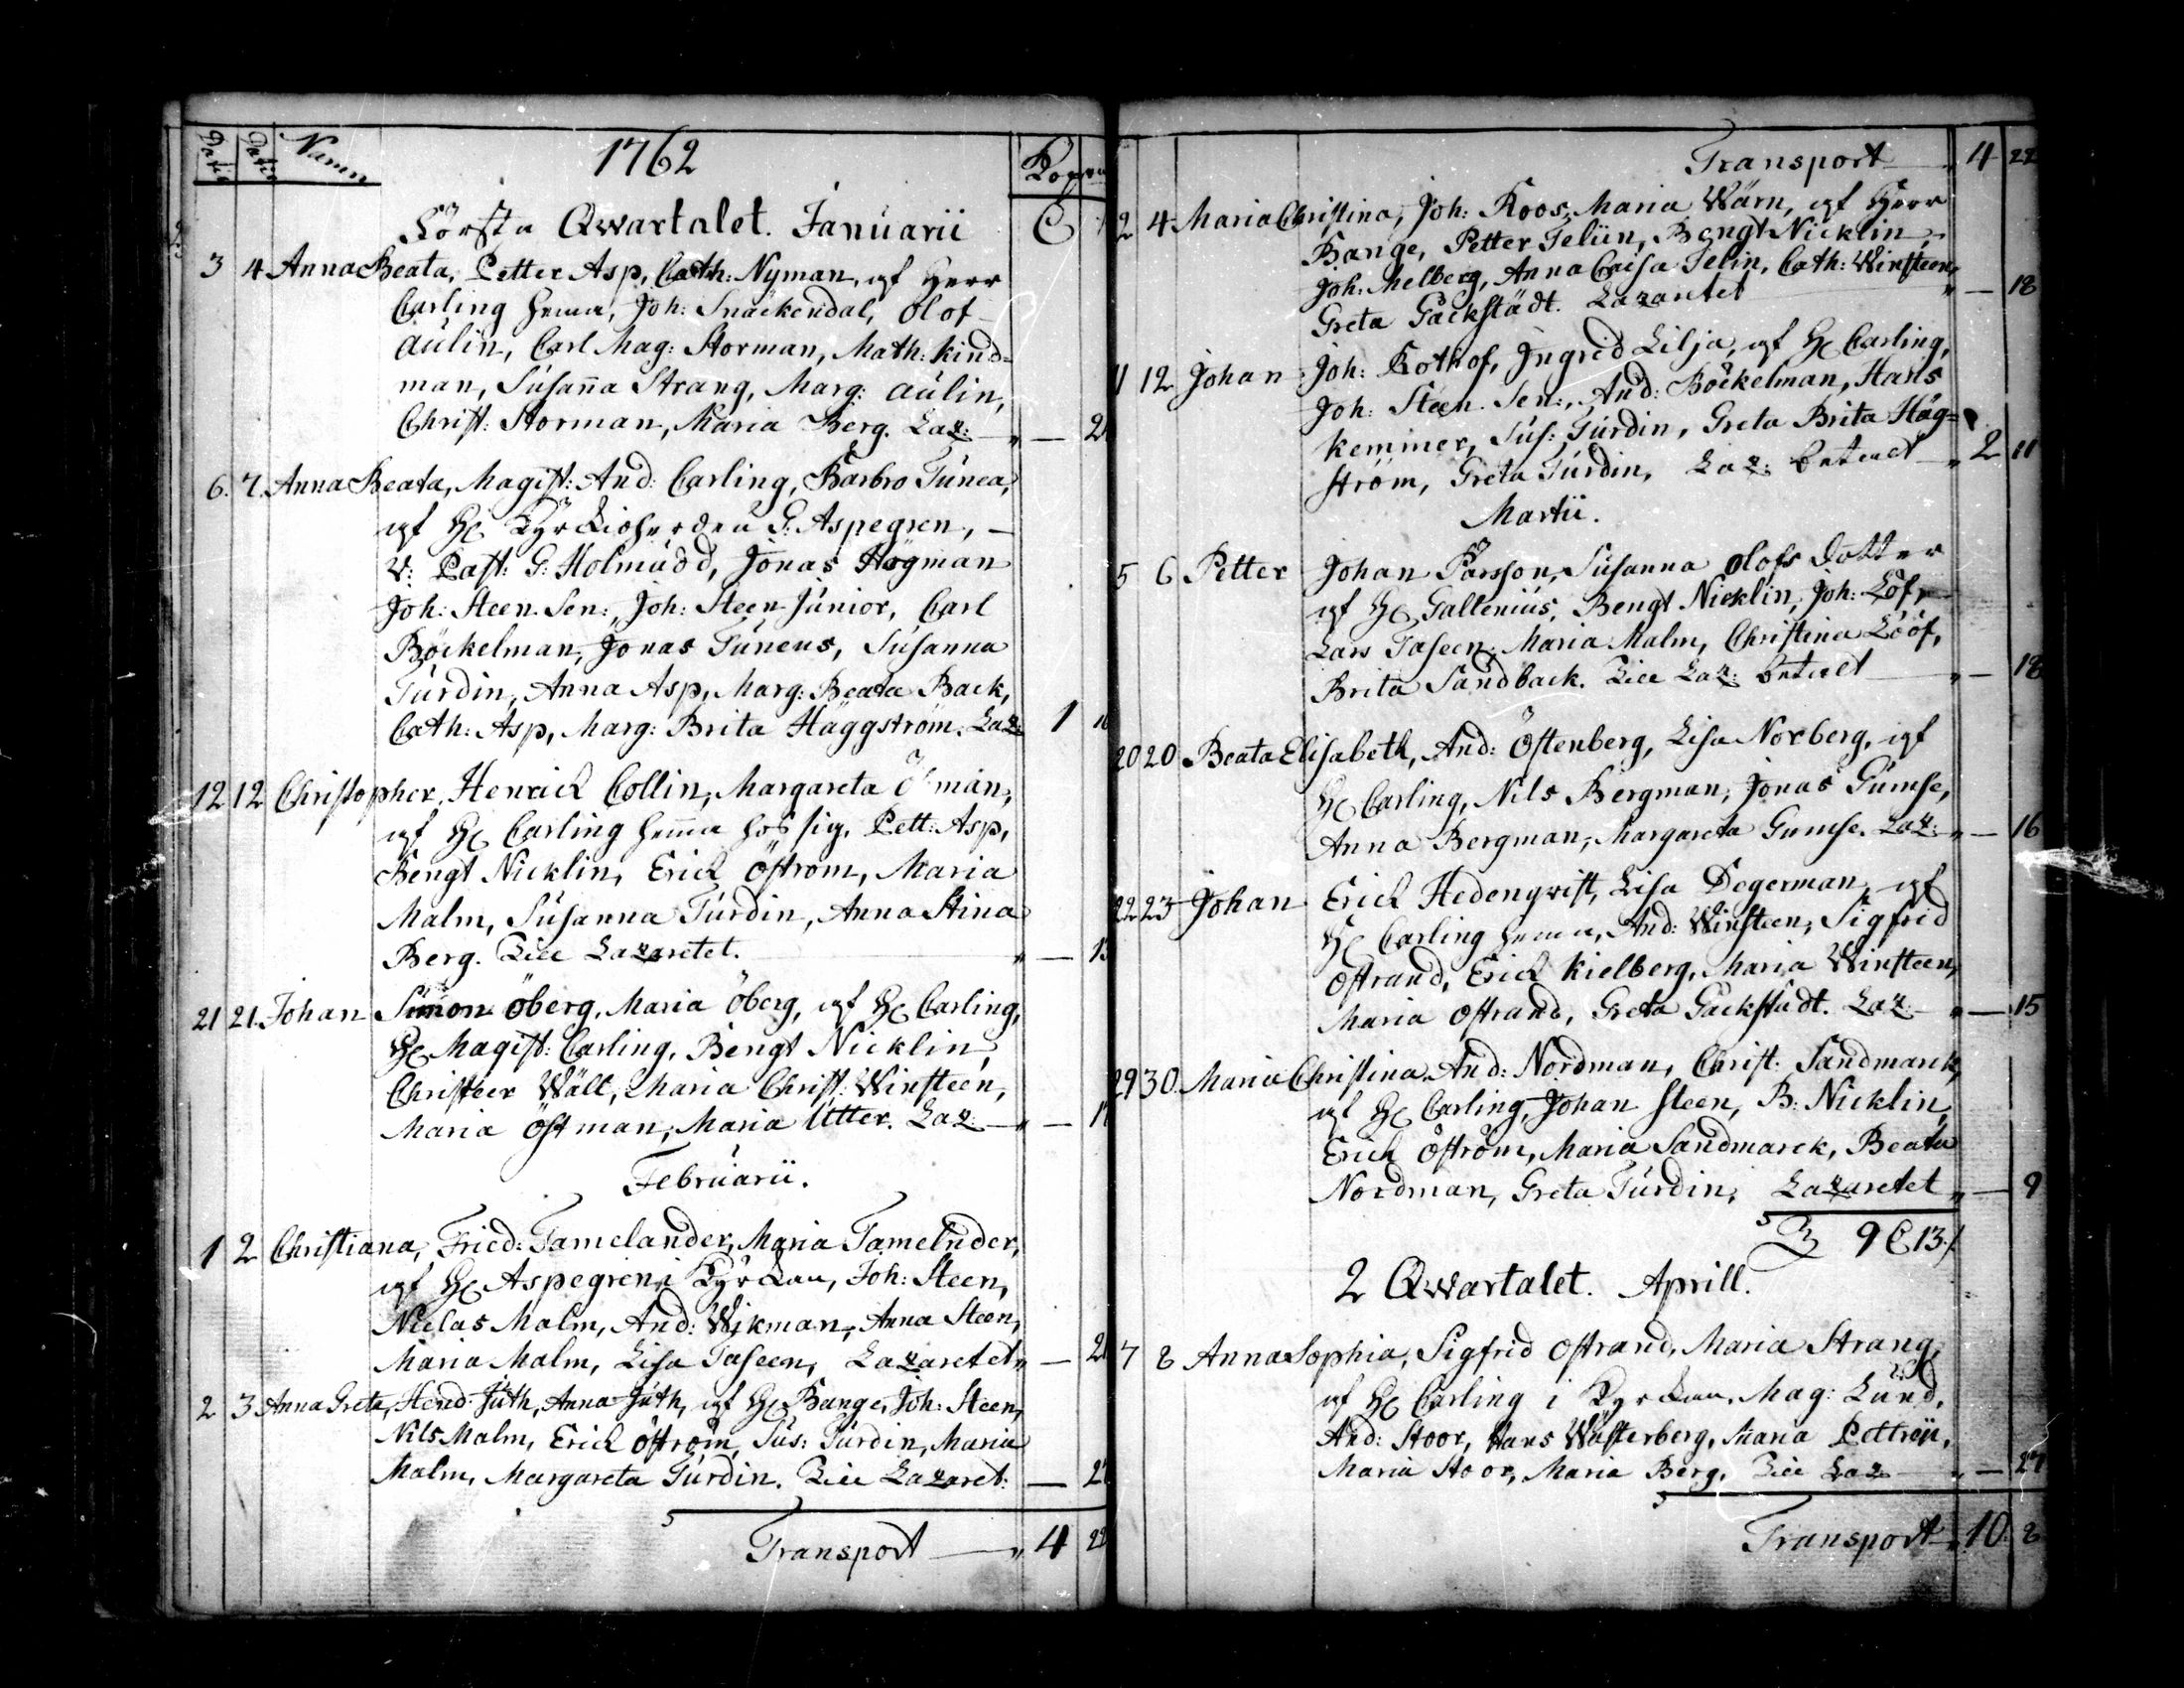 Datū Datū Namn 1762
Första Qwartalet. Januarii
3 4 Anna Beata, Petter Asp, Cath: Nyman, af Herr
Carling hema, Joh: Snäckendal, Olof
Aulin, Carl Mag: Storman, Math: Kind-
man, Susaña Strang, Marg: Aulin,
Christ: Storman, Maria Berg. Laz:
6. 7. Anna Beata, Magist: And: Carling, Barbro Tunea,
af H Kyrkioherden G: Aspegren,
V: Past: G: Holmudd, Jonas Högman
Joh: Steen Sen:, Joh: Steen Junior, Carl
Böckelman, Jonas Tuneus, Susanna
Turdin, Anna Asp, Marg: Beata Back,
Cath: Asp, Marg: Brita Häggström. Laz: 1
12 12 Christopher, Henrick Collin, Margareta Öman,
af H Carling hema hos sig, Pett: Asp,
Bengt Nicklin, Erick Öström, Maria
Malm, Susanna Turdin, Anna Stina
Berg. Lazaretet.
21 21. Johan Simon Öberg, Maria Öberg, af H Carling,
H Magist: Carling, Bengt Nicklin,
Christer Wält, Maria Christ: Winsteen,
Maria Östman, Maria Utter. Laz:
Februarii.
1 2 Christiana, Fried: Tamelander, Maria Tamelnder,
af H Aspegren i Kyrkan, Joh: Steen,
Niclas Malm, And: Wikman, Anna Steen,
Maria Malm, Lisa Taseen, Lazaretet
2 3 Anna Greta, Hend: Juth, Anna Juth, af H Bange, Joh: Steen,
Nils Malm, Erick Öström, Sus: Turdin, Maria
Malm, Margareta Turdin. Lazaret:
Transport 4 22
Transport 4 22
2 4 Maria Christina, Joh: Roos, Maria Wärn, af Herr
Bange, Petter Telin, Bengt Nicklin,
Joh: Melberg, Anna Caisa Telin, Cath: Winsteen,
Greta Gäckstädt. Lazaretet 18
11 12 Johan Joh: Rothof, Ingrid Lilja, af H Carling,
Joh: Steen Sen:, And: Böckelman, Hans
Kemmer, Sus: Turdin, Greta Brita Häg-
ström, Greta Turdin, Laz: betalt 2 11
Martii.
5 6 Petter Johan Parsson, Susanna Olofs dotter
af H Gallenius, Bengt Nicklin, Joh: Löf,
Lars Taseen, Maria Malm, Christina Lööf,
Brita Sandback. Laz: betalt 18
20 20 Beata Elisabeth, And: Östenberg, Lisa Norberg, af
H Carling, Nils Bergman, Jonas Gumse,
Anna Bergman, Margareta Gumse. Laz: 16
22 23 Johan Erick Hedenqvist, Lisa Degerman, af
H Carling hema, And: Winsteen, Sigfrid
Ostrand, Erick Kielberg, Maria Winsteen,
Maria Ostrand, Greta Gäckstädt. Laz: 15
29 30. Maria Christina, And: Nordman, Christ: Sandmarck,
af H Carling, Johan Steen, B: Nicklin,
Erick Öström, Maria Sandmarck, Beata
Nordman, Greta Turdin, Lazaretet 9
9 C 13./.
2 Qwartalet. Aprill.
7 8 Anna Sophia, Sigfrid Ostrand, Maria Strang,
af H Carling i Kyrkan. Mag: Lund,
And: Stoor, Hans Wästerberg, Maria
Maria Stoor, Maria Berg. Laz 27
Transport 10. 8